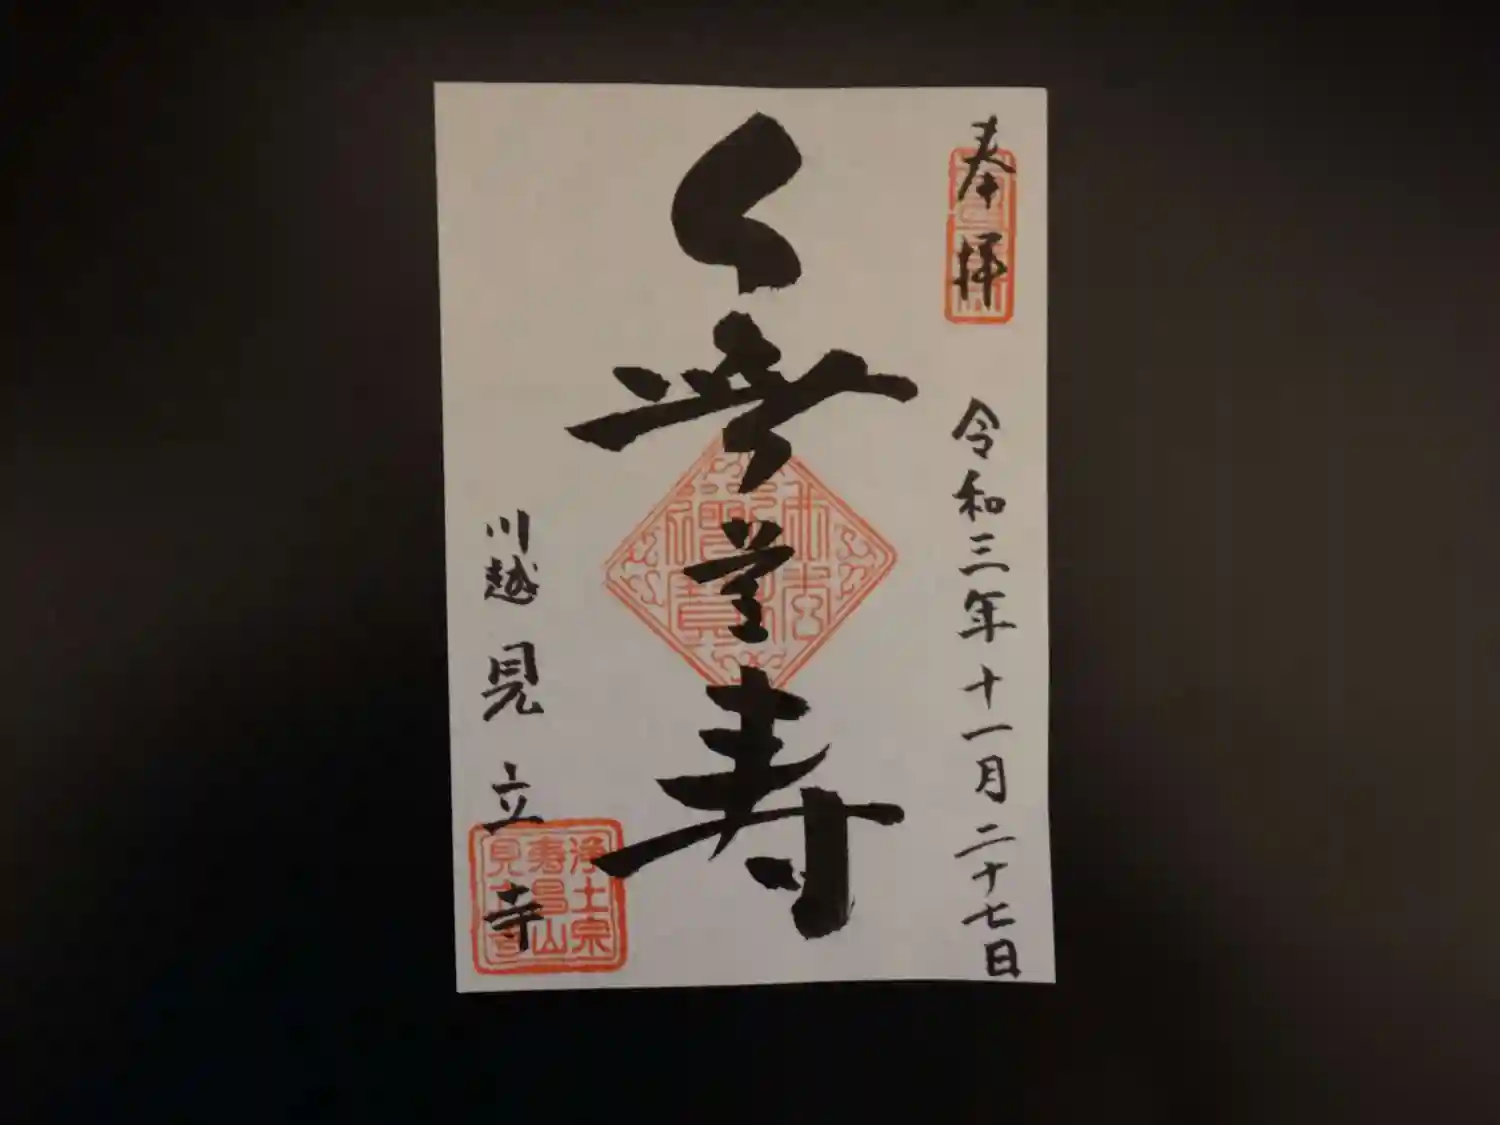 奉拝
令和三年十一月二十七日
無量寿
川越 見立寺
浄土宗
寿昌山
見立寺